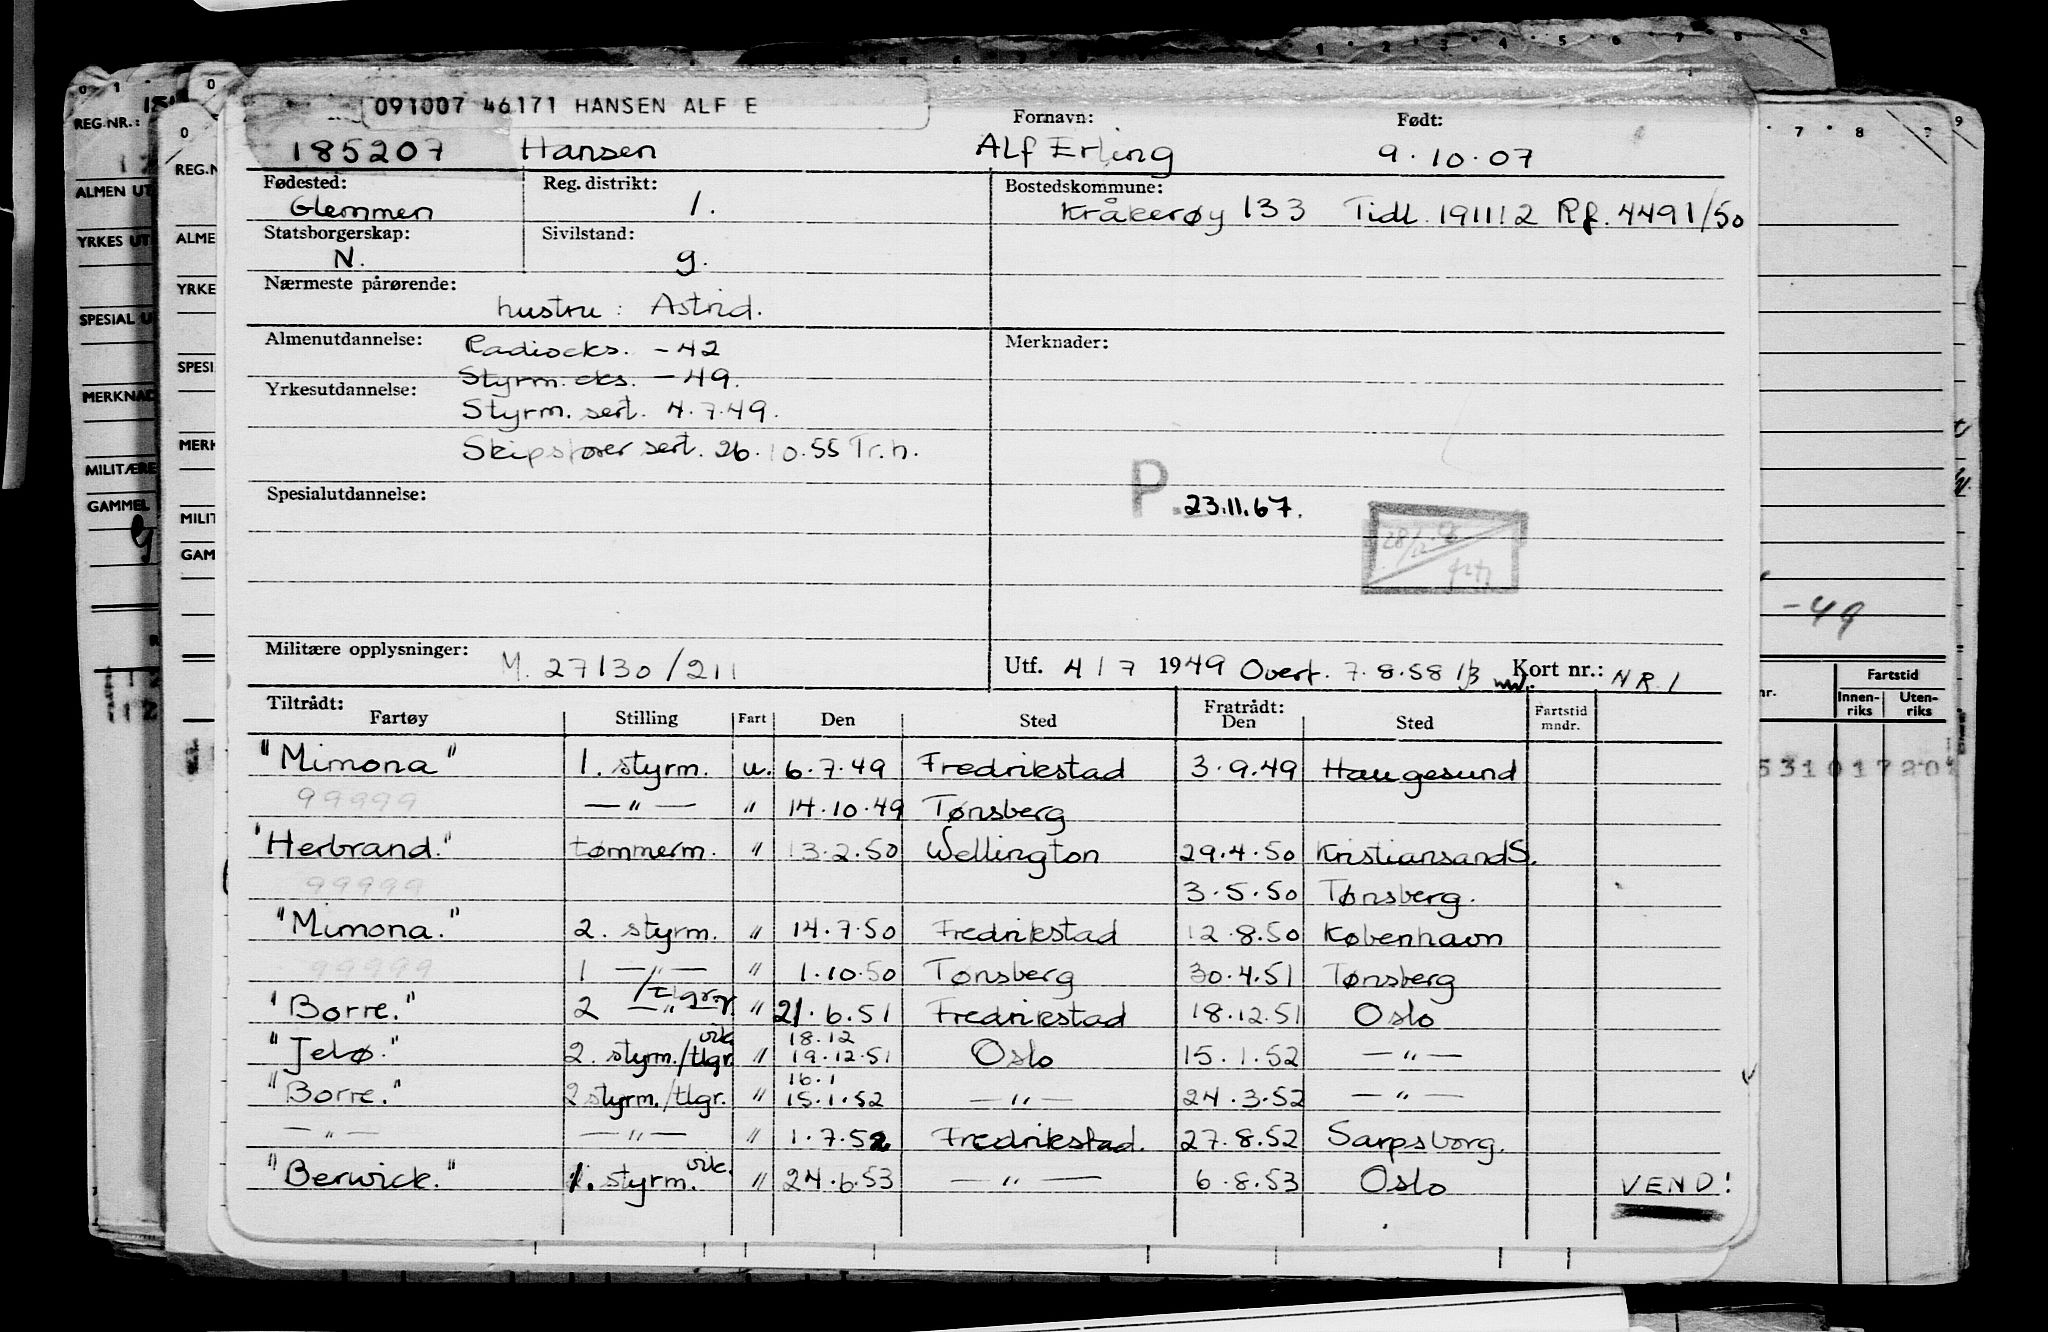 091007 46171 HANSEN ALF E
Fornavn: Født:
185207 Hansen Alf Erling 9.10.07
Fødested: Reg. distrikt: Bostedskommune:
Glemmen 1. Kråkerøy 133 Tidl. 191112 Rf. 4491/50
Statsborgerskap: Sivilstand:
N. g.
Nærmeste pårørende:
hustru: Astrid.
Almenutdannelse: Radioeks. -42 Merknader:
Styrm. eks. -49.
Yrkesutdannelse:
Styrm. sert. 4.7.49.
Skipsfører sert. 26.10.55 Tr.h.
Spesialutdannelse:
P. 23.11.67.
Militære opplysninger: M. 27130/211 Utf. 4/7 1949 Overf. 7.8.58 Kort nr.: NR. 1
Tiltrådt: Fratrådt:
Fartøy Stilling Fart Den Sted Den Sted Fartstid mndr.
"Mimona" 1. styrm. u. 6.7.49 Fredrikstad 3.9.49 Haugesund
99999 —"— " 14.10.49 Tønsberg
"Herbrand." tømmerm. " 13.2.50 Wellington 29.4.50 Kristiansand S.
99999 3.5.50 Tønsberg.
"Mimona." 2. styrm. " 14.7.50 Fredrikstad 12.8.50 København
99999 1 —"— " 1.10.50 Tønsberg 30.4.51 Tønsberg
"Borre." 2 —"— /tlgr. " 21.6.51 Fredrikstad 18.12.51 Oslo
vik. 18.12
"Jelø." 2. styrm./tlgr. " 19.12.51 Oslo 15.1.52 —"—
16.1
"Borre." 2 styrm./tlgr. " 15.1.52 —"— 24.3.52 —"—
—"— —"— " 1.7.52 Fredrikstad. 27.8.52 Sarpsborg.
vik.
"Berwick." 1. styrm. " 24.6.53 —"— 6.8.53 Oslo VEND!
REG.NR.:
ALMEN UT
YRKES UT
SPESIAL U
MERKNAD
MILITÆRE
GAMMEL
REG.N
ALME
YRKE
SPESI
MERK
MILIT
GAM
-49
Fartstid
Innen-riks Uten-riks